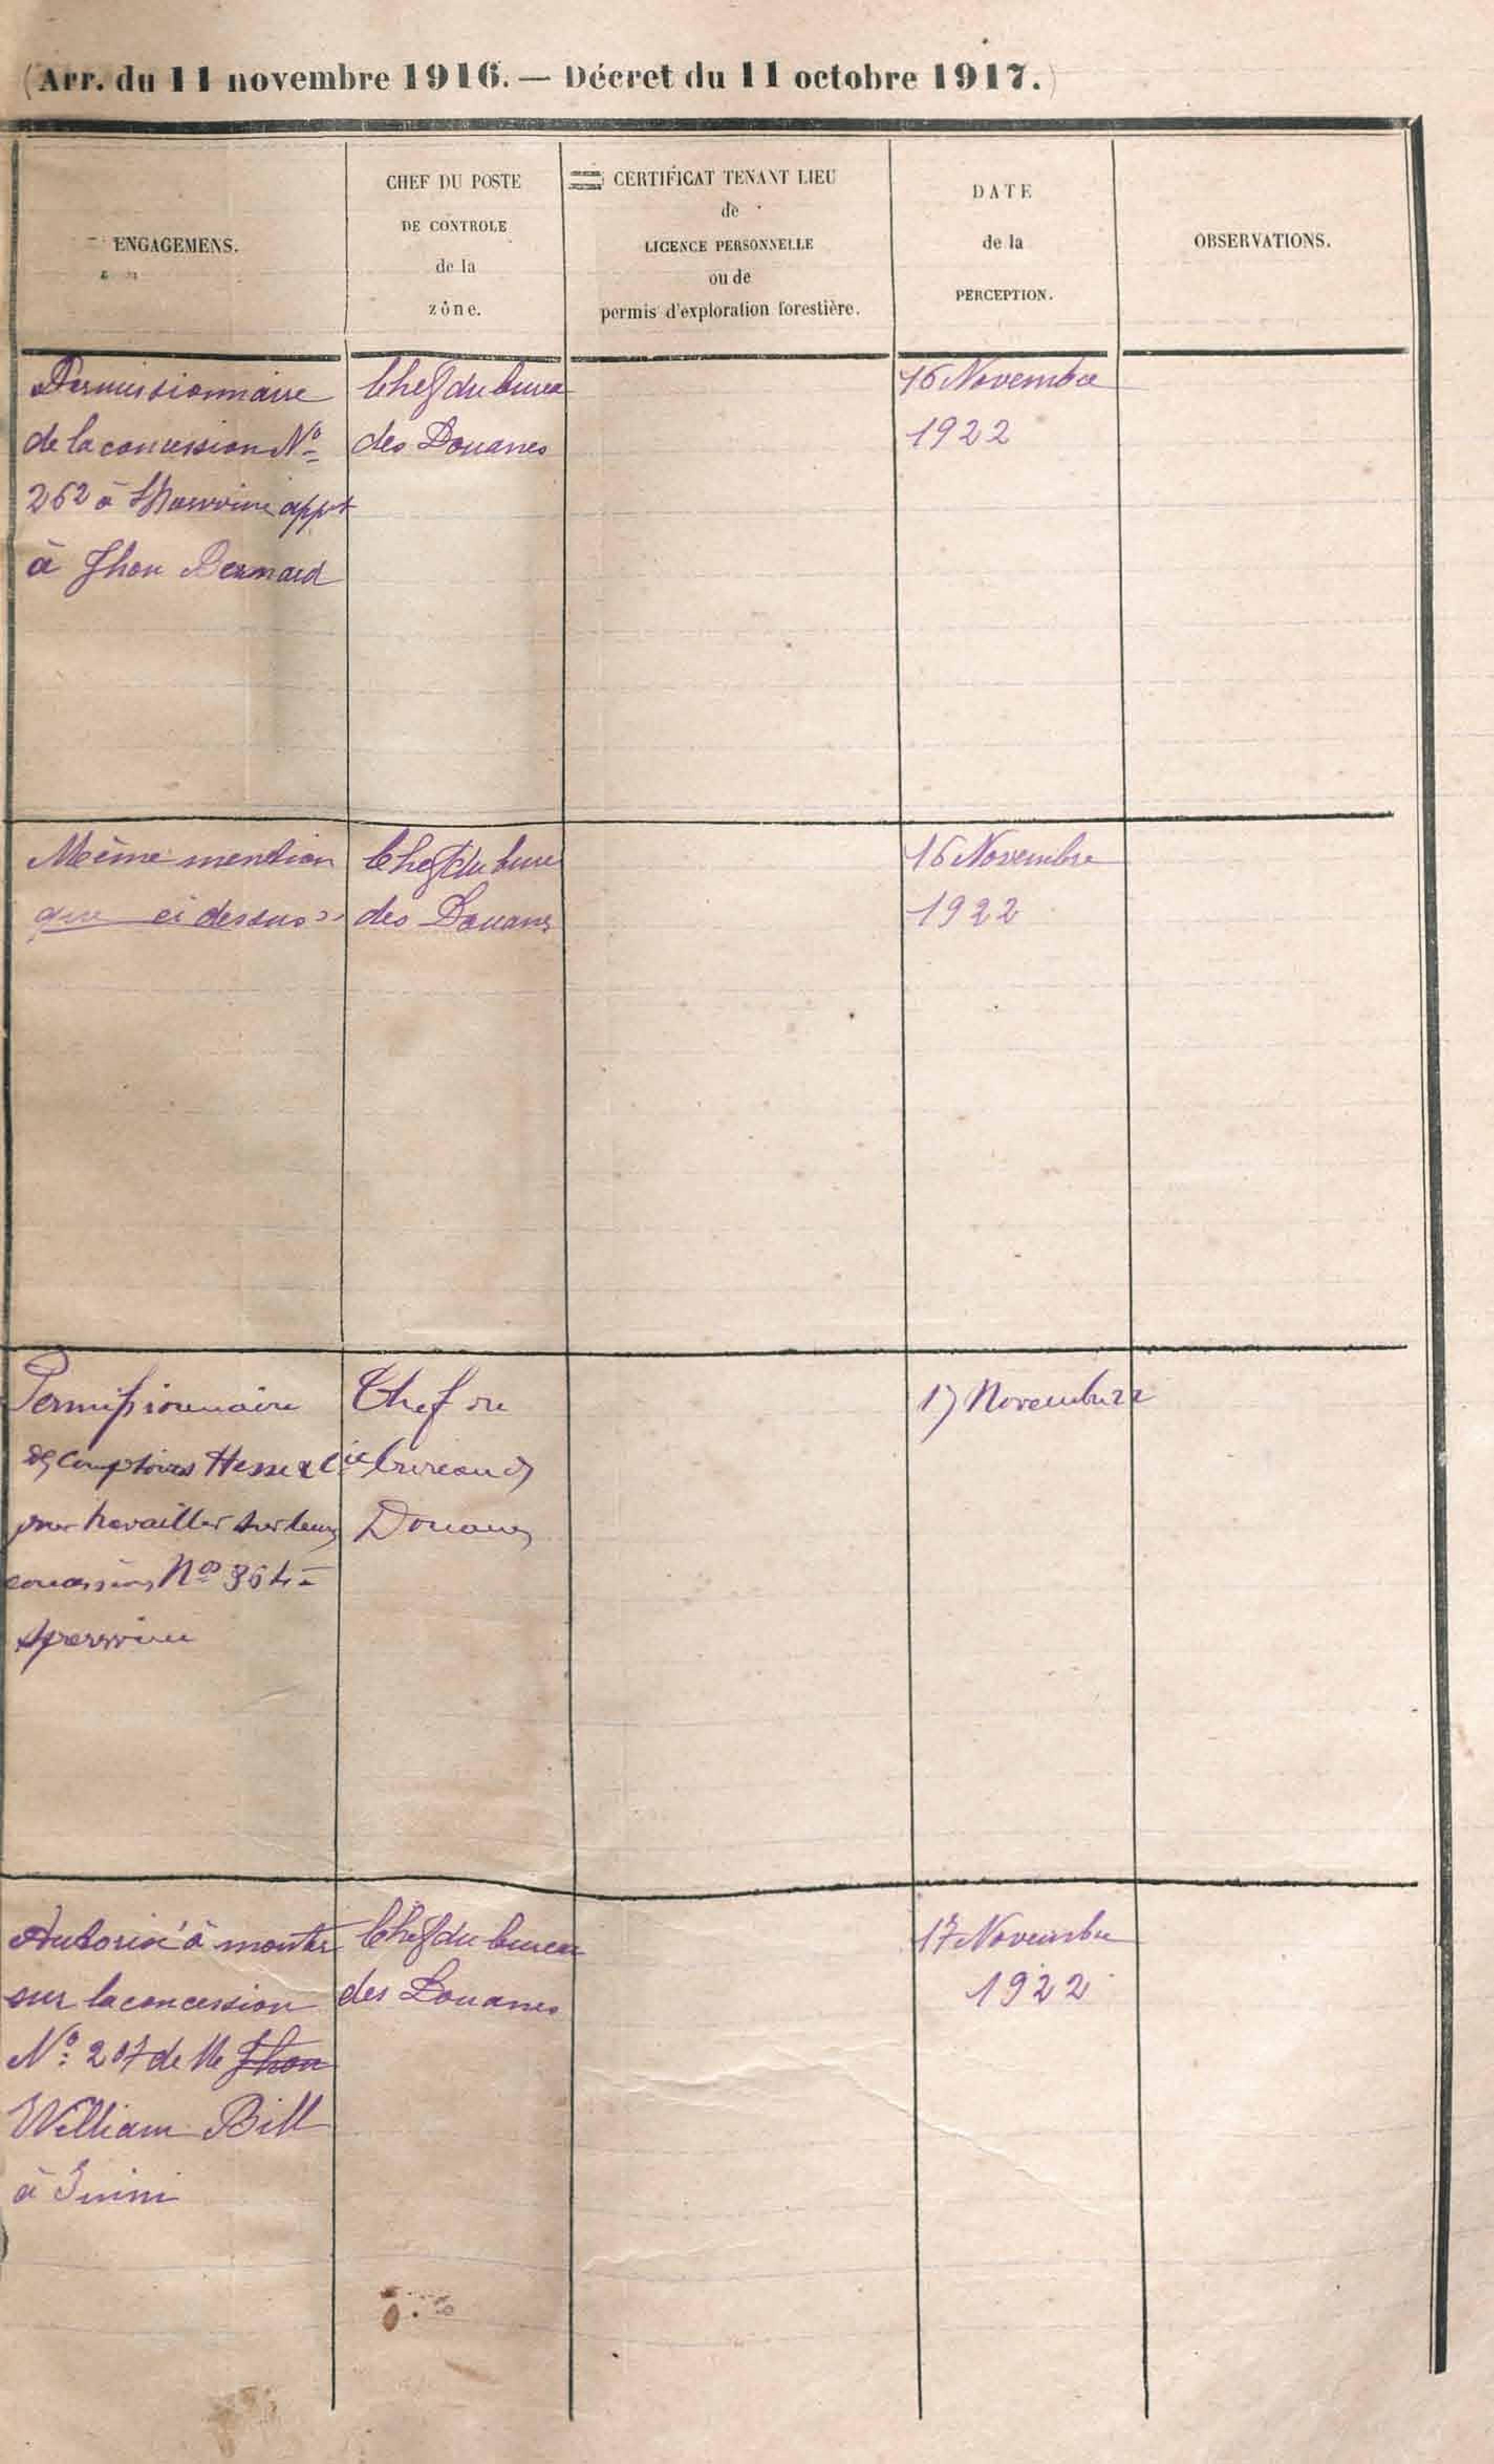 (Arr. du 11 novembre 1916. — Décret du 11 octobre 1917.)
ENGAGEMENS.
CHEF DU POSTE
DE CONTROLE
de la
zône.
CERTIFICAT TENANT LIEU
de
LICENCE PERSONNELLE
ou de
permis d'exploration forestière.
DATE
de la
PERCEPTION.
OBSERVATIONS.
Permissionnaire
de la concession No
262 à appt
à Jhon Bernard
Chef du bureau
des Douanes
16 Novembre
1922
Même mention
que ci dessus
Chef du bureau
des Douanes
16 Novembre
1922
Permissionnaire
des Comptoirs Hesse & Cie
pour travailler sur leurs
concessions No 364 à
Chef du
bureau des
Douanes
17 Novembre 22
Autorisé à monter
sur la concession
No 207 de Mr Jhon
William Bill
à Inini
Chef du bureau
des Douanes
17 Novembre
1922